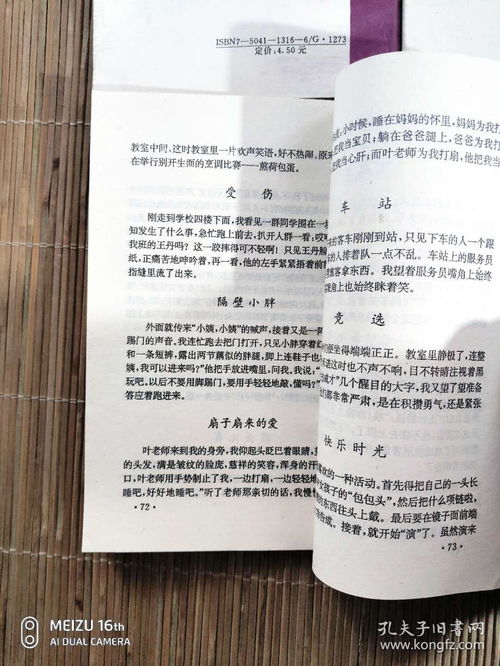 ISBN7—5041—1316—6/G·1273
定价:4.50元
教室中间,这时教室里一片欢声笑语,好不热闹,原来
在举行别开生面的烹调比赛——煎荷包蛋。
受 伤
刚走到学校四楼下面,我看见一群同学围在一块
知发生了什么事,急忙跑上前去,扒开人群一看;哎呀
我班的王丹吗?这一跤摔得可不轻啊!只见王丹脸
纸,正痛苦地呻吟着,再一看,他的左手紧紧捂着前
指缝里流了出来。
隔壁小胖
外面就传来“小姨,小姨”的喊声,接着又是一阵
踢门的声音。我连忙跑去把门打开,只见小胖穿着红
和一条短裤,露出两节藕似的胖腿,脚上连鞋子也
姨,我可以进来吗?”他把手放进嘴里,问我,我说:“
玩吧,以后不要用脚踢门,要用手轻轻地敲,懂吗?”
答应着跑进来。
扇子扇来的爱
叶老师来到我的身旁,我仰起头眨巴着眼睛,
的头发,满是皱纹的脸庞,慈祥的笑容,浑身的汗
口,叶老师用手势制止了我,一边打扇,一边轻轻地
睡吧,好好地睡吧。”听了老师那亲切的话,我慢慢
·72·
小时候,睡在妈妈的怀里,妈妈为我打
我当宝贝;躺在爸爸腿上,爸爸为我打
我当心肝;而叶老师为我打扇,他把我当
车 站
客车刚刚到站,只见下车的人一个跟
的人排着队一点不乱。车站上的服务员
旅客拿东西。我望着服务员嘴角上始终
角上也始终眯着笑。
竞 选
们硬坐得端端正正。教室里静极了,连整
这时也不声不响,目不转睛注视着黑
成才”几个醒目的大字,我又望了望准备
们都非常严肃,是在积攒勇气,还是紧张
快乐时光
欢的一种活动。首先得把自己的一头长
女孩子的“包包头”,然后把什么项链啦,
的东西往头上戴。最后要在镜子而前端
合成。接着,就开始“演”了。虽然演来
73·
MEIZU 16th
AI DUAL CAMERA
孔夫子旧书网
www.kongfz.com